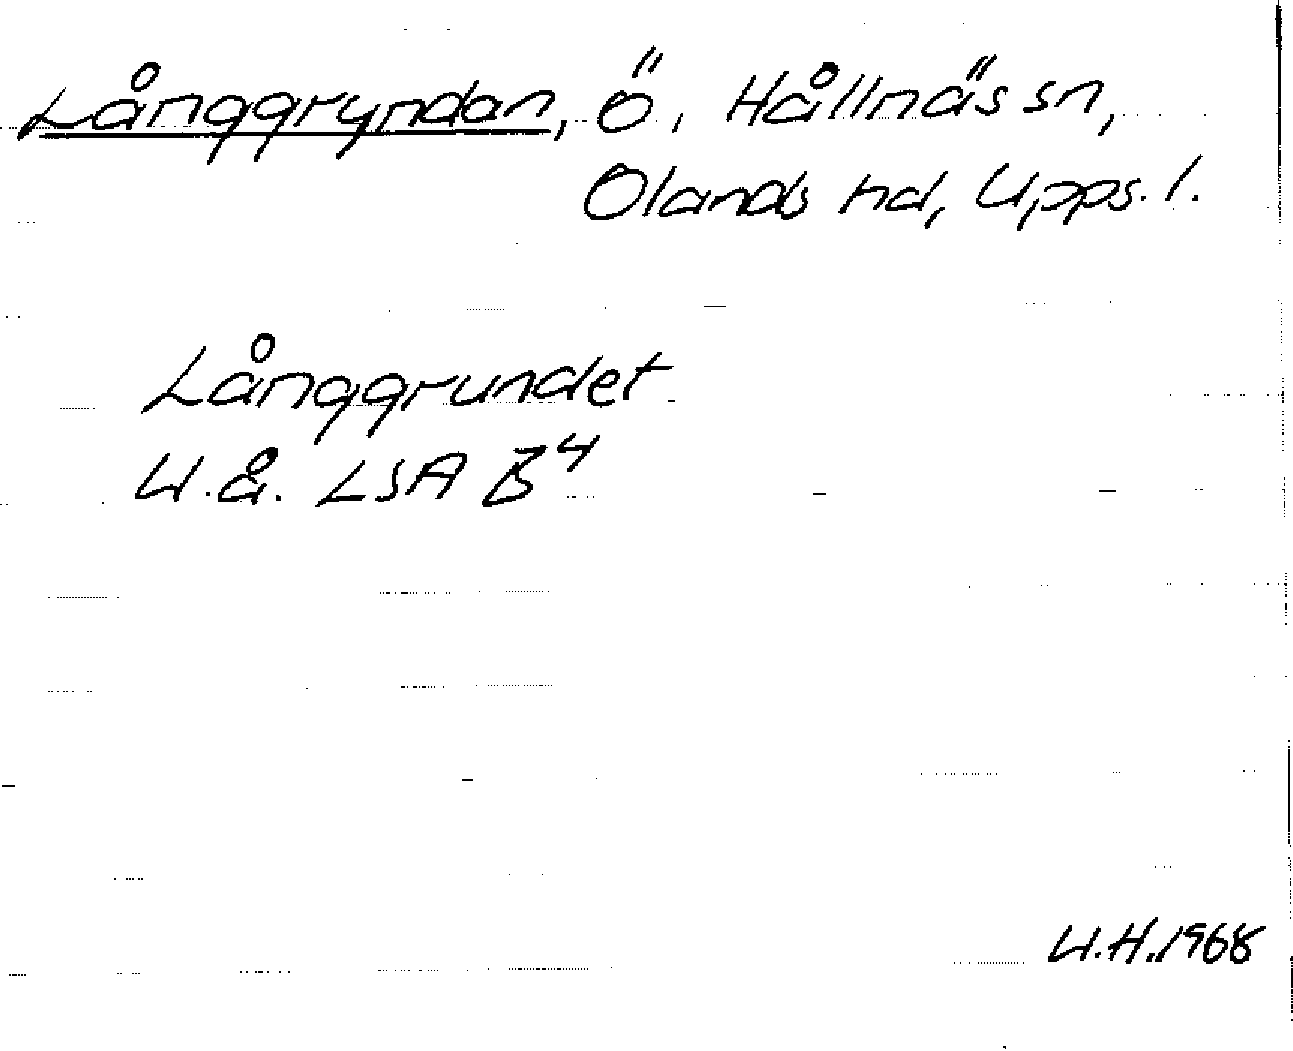 Långgryndan, ö, Hållnäs sn,
Olands hd, Upps. l.
Långgrundet
U.å. LSA B4
U.H. 1968